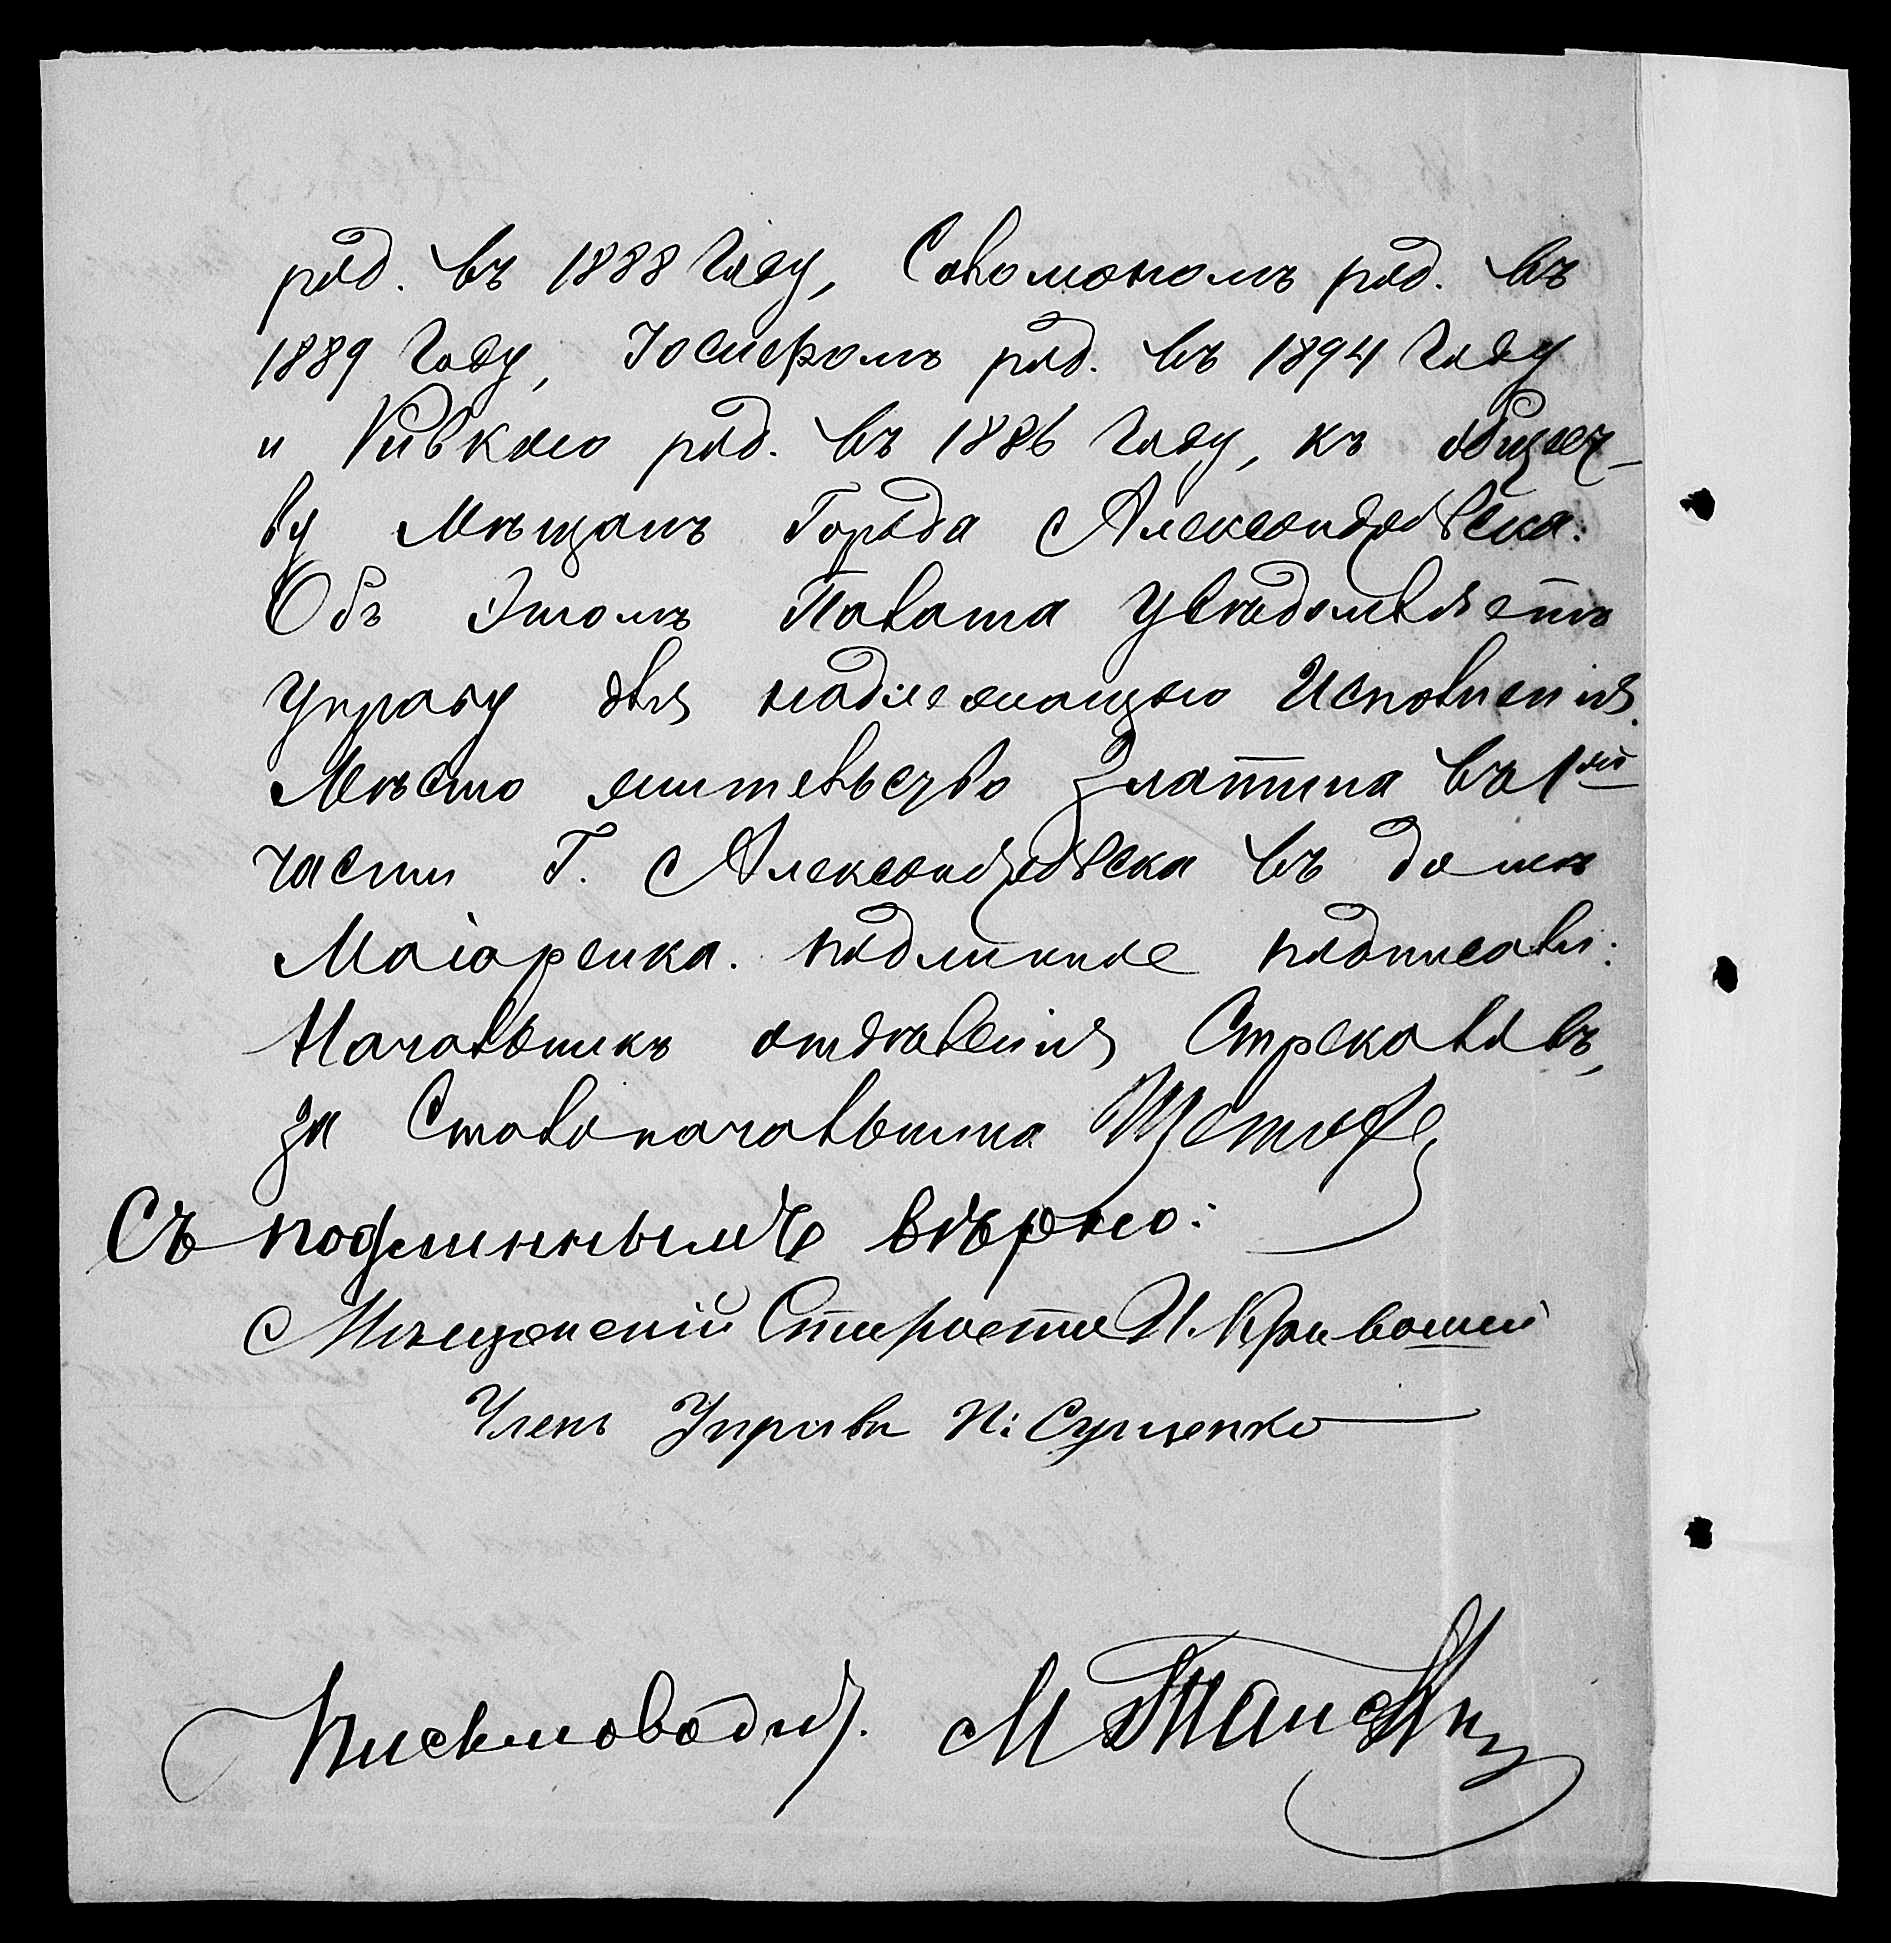 род. въ 1888 Году, Соломономъ род. въ
1889 Году, Іосифомъ род. въ 1894 Году
и Ривкою род. въ 1886 Году, къ общест-
ву Мѣщанъ Города Александровска.
Объ этомъ Палата Увѣдомляетъ
Управу для надлежащаго Исполненія.
Мѣсто жительство Златина въ 1ой
части Г. Александровска въ домѣ
Маіоренка. Подлинное подписали:
Начальникъ отдѣленія Стрекаловъ,
за Столоначальника
Съ подлиннымъ вѣрно:
Мѣщанскій Староста И. Кривошей
Членъ Управы И: Сущенко
Письмовод. М